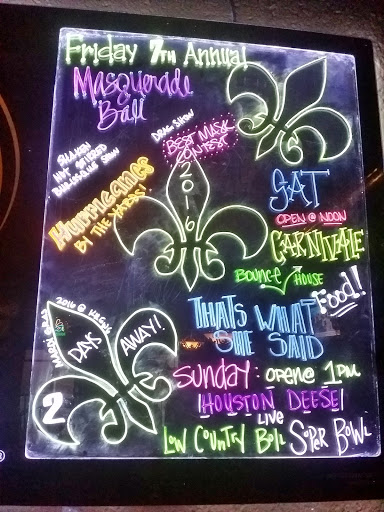 Friday 7th Annual
Masquerade
Ball
SHAKEN
NOT STIRRED
BURLESQUE SHOW
DRAG SHOW
BEST MASK
CONTEST
Hurricanes
BY THE YARDS!
2016
SAT
OPEN @ NOON
CARNIVALE
BOUNCE HOUSE
FOOD!
THATS WHAT
SHE SAID
MARDI GRAS 2016 @
2 DAYS AWAY!
Sunday: OPEN @ 1PM
HOUSTON DEESE
LIVE
LOW COUNTRY BOIL SUPER BOWL